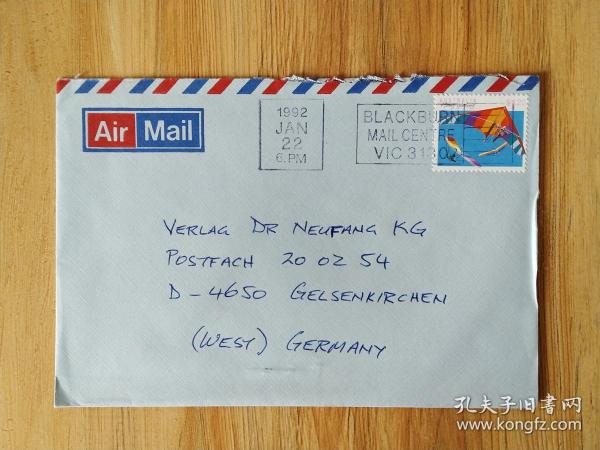 Air Mail
1992
JAN
22
6. PM
BLACKBURN
MAIL CENTRE
VIC 3130
VERLAG DR NEUFANG KG
POSTFACH 20 02 54
D - 4650 GELSENKIRCHEN
(WEST) GERMANY
孔夫子旧书网
www.kongfz.com